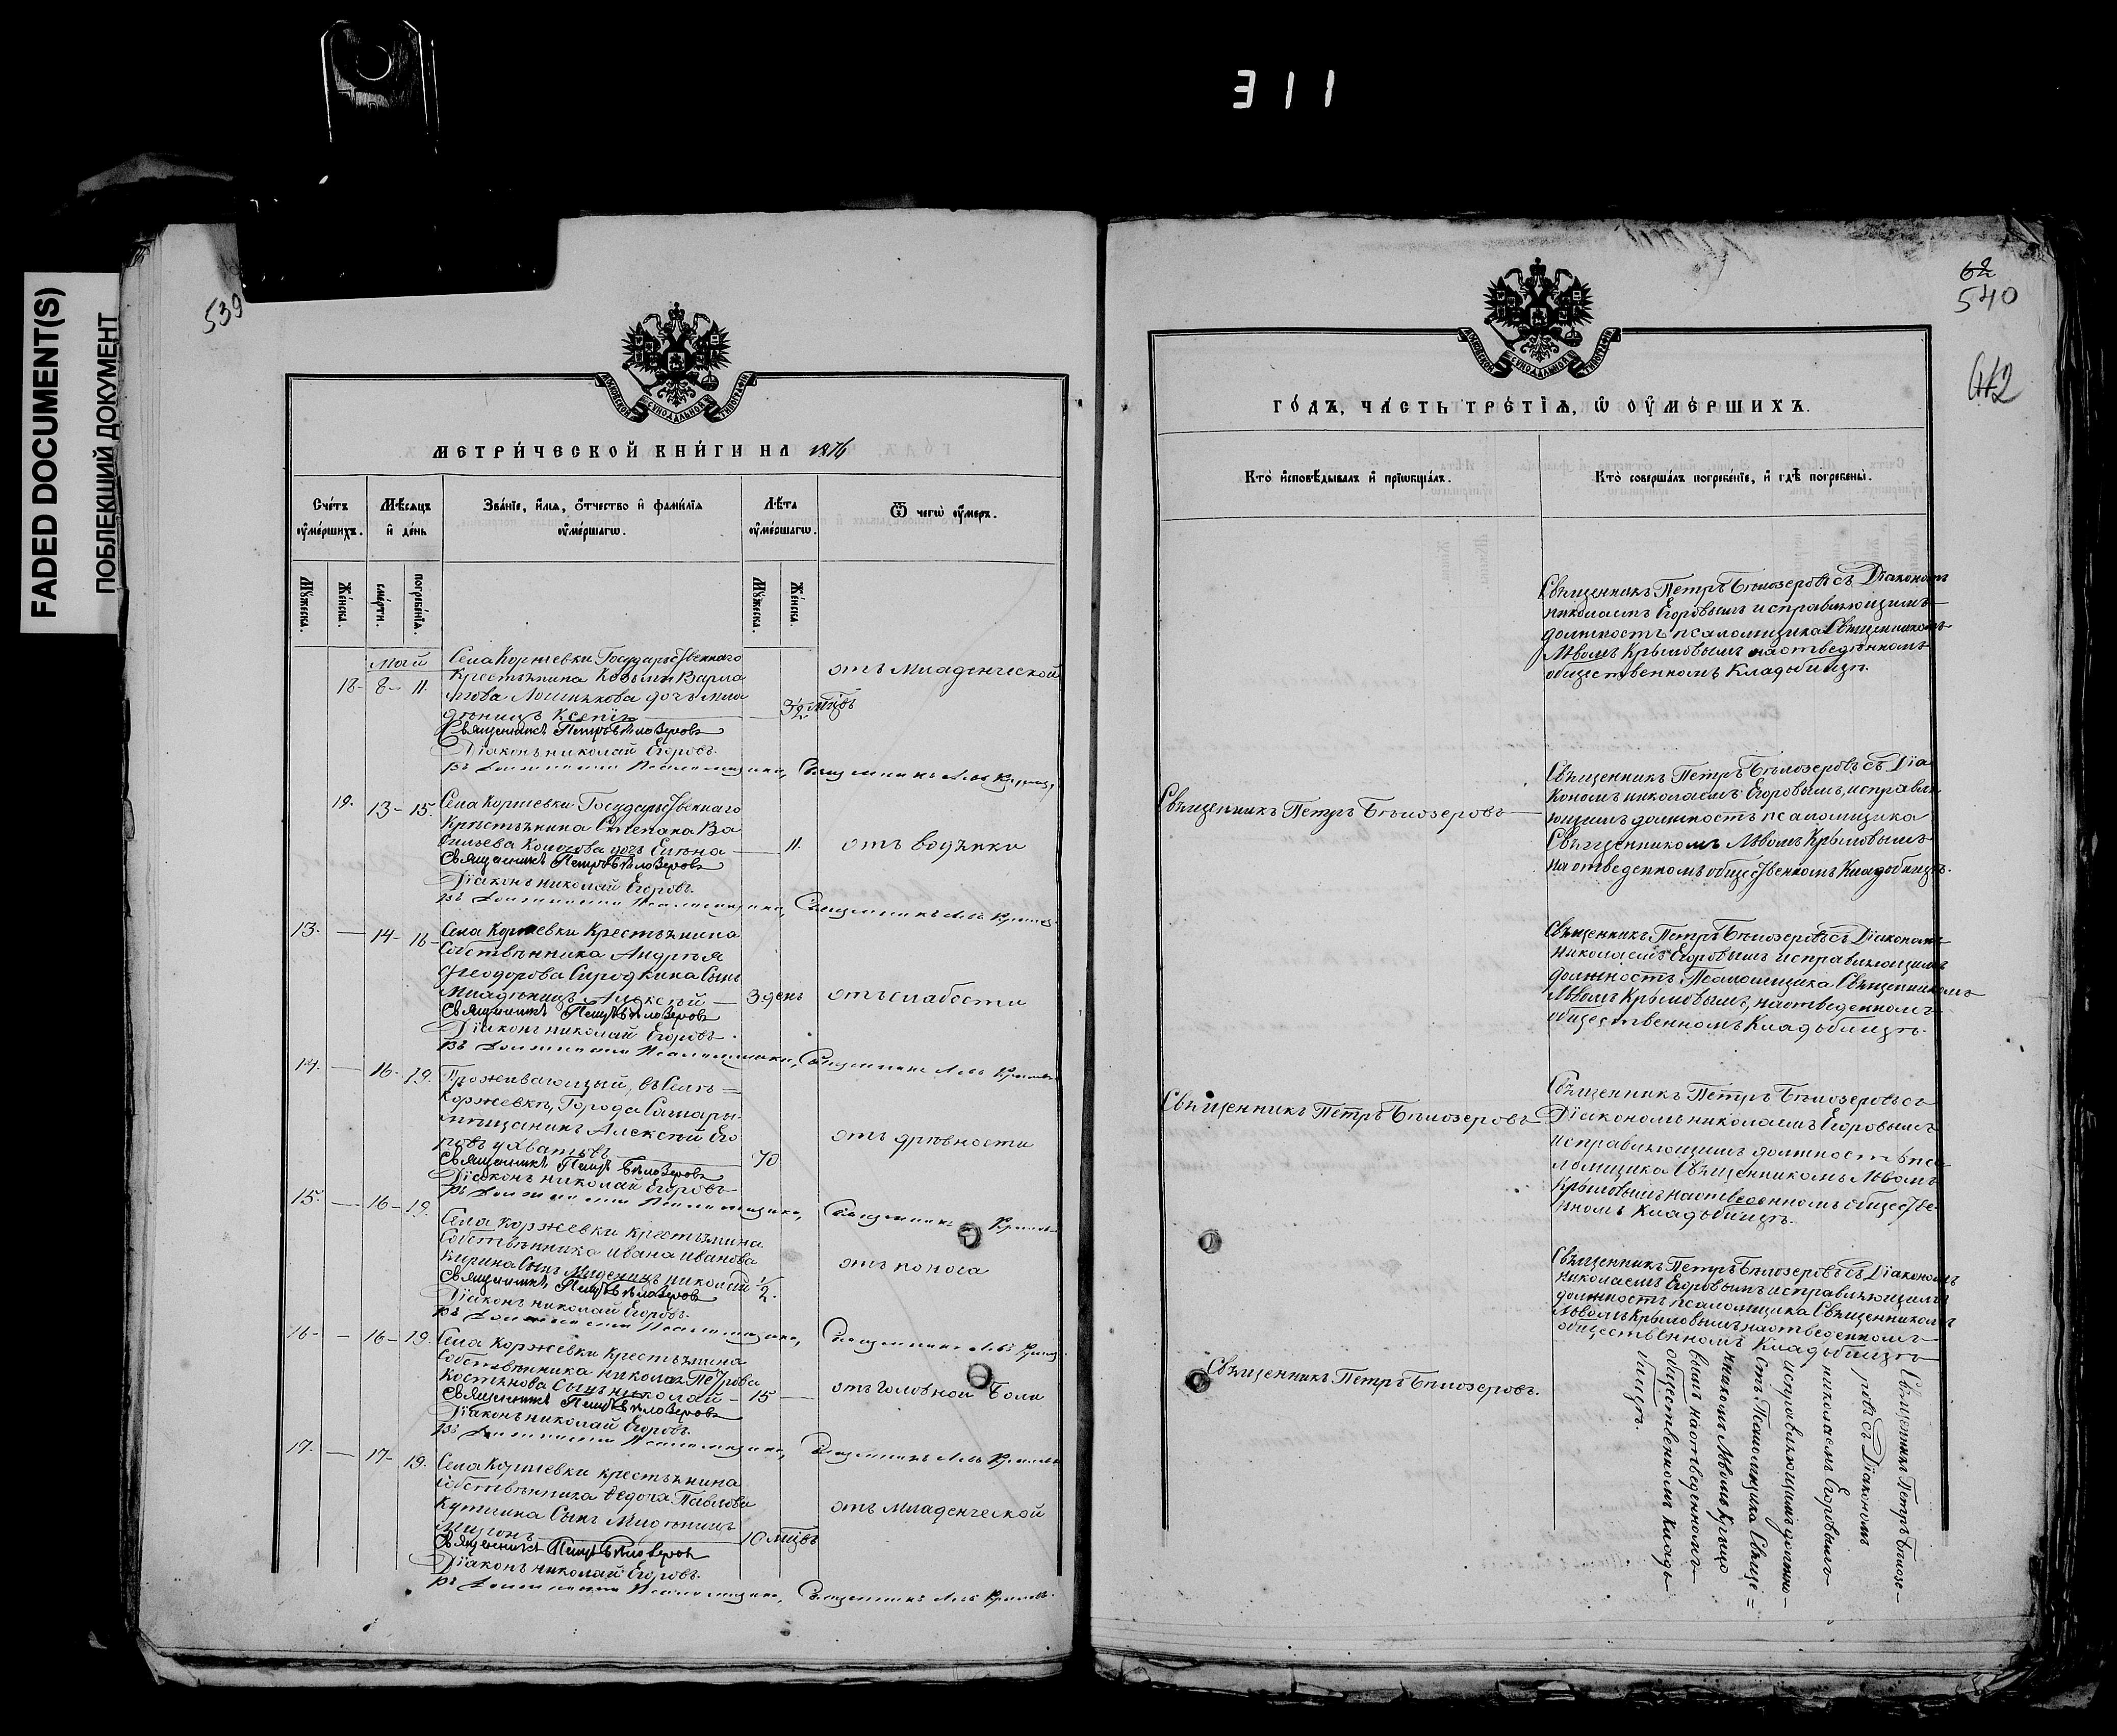 311
FADED DOCUMENT(S)
ПОБЛЕКШИЙ ДОКУМЕНТ
539
МОСКОВСКОЙ СѴНОДАЛЬНОЙ ТИПОГРАФІИ
МЕТРИ́ЧЕСКОЙ КНИ́ГИ НА 1876
Сче́тъ ᲂу҆ме́ршихъ.
Мѣ́сяцъ и҆ де́нь
Зва́нїе, и҆́мѧ, ѻ҆́тчество и҆ фамѝлїѧ ᲂу҆ме́ршагѡ.
Лѣ́та ᲂу҆ме́ршагѡ.
Ѿ чегѡ̀ ᲂу҆́меръ.
Мꙋ́жеска.
Же́нска.
сме́рти.
погребе́нїѧ.
Мꙋ́жеска.
Же́нска.
Май
18 - 8 - 11.
Села Коржевки Государственнаго
Крестьянина Козьмы Варла
мова Лошнякова дочь мла
денецъ Ксенія
3 1/2 мцвъ
отъ младенческой
Священникъ Петръ Бѣлозеровъ
Діаконъ Николай Егоровъ.
Въ должности Псаломщика, Священникъ Левъ Крыловъ
19. 13 - 15.
Села Коржевки Государственнаго
Крестьянина Степана Ва
сильева дочь Елена
11.
отъ водянки
Священникъ Петръ Бѣлозеровъ
Діаконъ Николай Егоровъ.
Въ должности Псаломщика, Священникъ Левъ Крыловъ
13. — 14 - 16
Села Коржевки Крестьянина
Собственника Андрея
Феодорова Сироткина Сынъ
Младенецъ Алексѣй
3 день
отъ слабости
Священникъ Петръ Бѣлозеровъ
Діаконъ Николай Егоровъ.
Въ должности Псаломщика, Священникъ Левъ Крыловъ
14. — 16 - 19.
Проживающій въ Селѣ =
Коржевкѣ, Города Самары
мѣщанинъ Алексѣй Его
ровъ
70
отъ древности
Священникъ Петръ Бѣлозеровъ
Діаконъ Николай Егоровъ
Въ должности Псаломщика, Священникъ Крыловъ
15. — 16 - 19.
Села Коржевки крестьянина
Собственника Ивана Иванова
Сынъ Младенецъ Николай
1/2.
отъ поноса
Священникъ Петръ Бѣлозеровъ
Діаконъ Николай Егоровъ.
Въ должности Псаломщика, Священникъ Левъ Крыловъ
16 - - 16 - 19.
Села Коржевки Крестьянина
Собственника Николая Петрова
Костянова Сынъ Николай - 15
отъ головной боли
Священникъ Петръ Бѣлозеровъ
Діаконъ Николай Егоровъ.
Въ должности Псаломщика, Священникъ Левъ Крыловъ
17. — 17 - 19.
Села Коржевки крестьянина
Собственника Федота Павлова
Сынъ Младенецъ
Миронъ
10 мцвъ
отъ младенческой
Священникъ Петръ Бѣлозеровъ
Діаконъ Николай Егоровъ.
Въ должности Псаломщика, Священникъ Левъ Крыловъ.
62
540
412
МОСКОВСКОЙ СѴНОДАЛЬНОЙ ТИПОГРАФІИ
ГО́ДЪ, ЧА́СТЬ ТРЕ́ТЇѦ, Ѡ҆ ОУ҆МЕ́РШИХЪ.
Кто̀ и҆сповѣ́дывалъ и҆ прїѡбща́лъ.
Кто̀ соверша́лъ погребе́нїе, и҆ гдѣ̀ погребены̀.
Священникъ Петръ Бѣлозеровъ съ Діакономъ
Николаемъ Егоровымъ исправляющимъ
должность псаломщика Священникомъ
Львомъ Крыловымъ на отведенномъ
общественномъ Кладбищѣ.
Священникъ Петръ Бѣлозеровъ
Священникъ Петръ Бѣлозеровъ съ Діа
кономъ Николаемъ Егоровымъ, исправля
ющимъ должность псаломщика
Священникомъ Львомъ Крыловымъ
на отведенномъ общественномъ Кладбищѣ.
Священникъ Петръ Бѣлозеровъ съ Діакономъ
Николаемъ Егоровымъ исправляющимъ
должность Псаломщика Священникомъ
Львомъ Крыловымъ, на отведенномъ
общественномъ Кладбищѣ.
Священникъ Петръ Бѣлозеровъ
Священникъ Петръ Бѣлозеровъ съ
Діакономъ Николаемъ Егоровымъ
исправляющимъ должность пса
ломщика Священникомъ Львомъ
Крыловымъ на отведенномъ обществе
нномъ Кладбищѣ.
Священникъ Петръ Бѣлозеровъ съ Діакономъ
Николаемъ Егоровымъ исправляющимъ
должность псаломщика Священникомъ
Львомъ Крыловымъ на отведенномъ
общественномъ Кладбищѣ
Священникъ Петръ Бѣлозеровъ.
Священникъ Петръ Бѣлозе-
ровъ съ Діакономъ
Николаемъ Егоровымъ
исправляющимъ должно-
сть Псаломщика Свяще=
нникомъ Львомъ Крыло
вымъ на отведенномъ
общественномъ Кладъ
бищѣ.